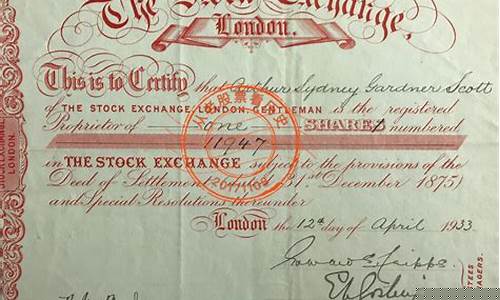 The Stock Exchange,
London.
This is to Certify that Arthur Sydney Gardner Scott
OF THE STOCK EXCHANGE LONDON, GENTLEMAN is the registered
Proprietor of one SHARE numbered
11947
in THE STOCK EXCHANGE subject to the provisions of the
Deed of Settlement 31st December 1875)
and Special Resolutions thereunder
London the 12th day of April 1933
LONDON
20111109